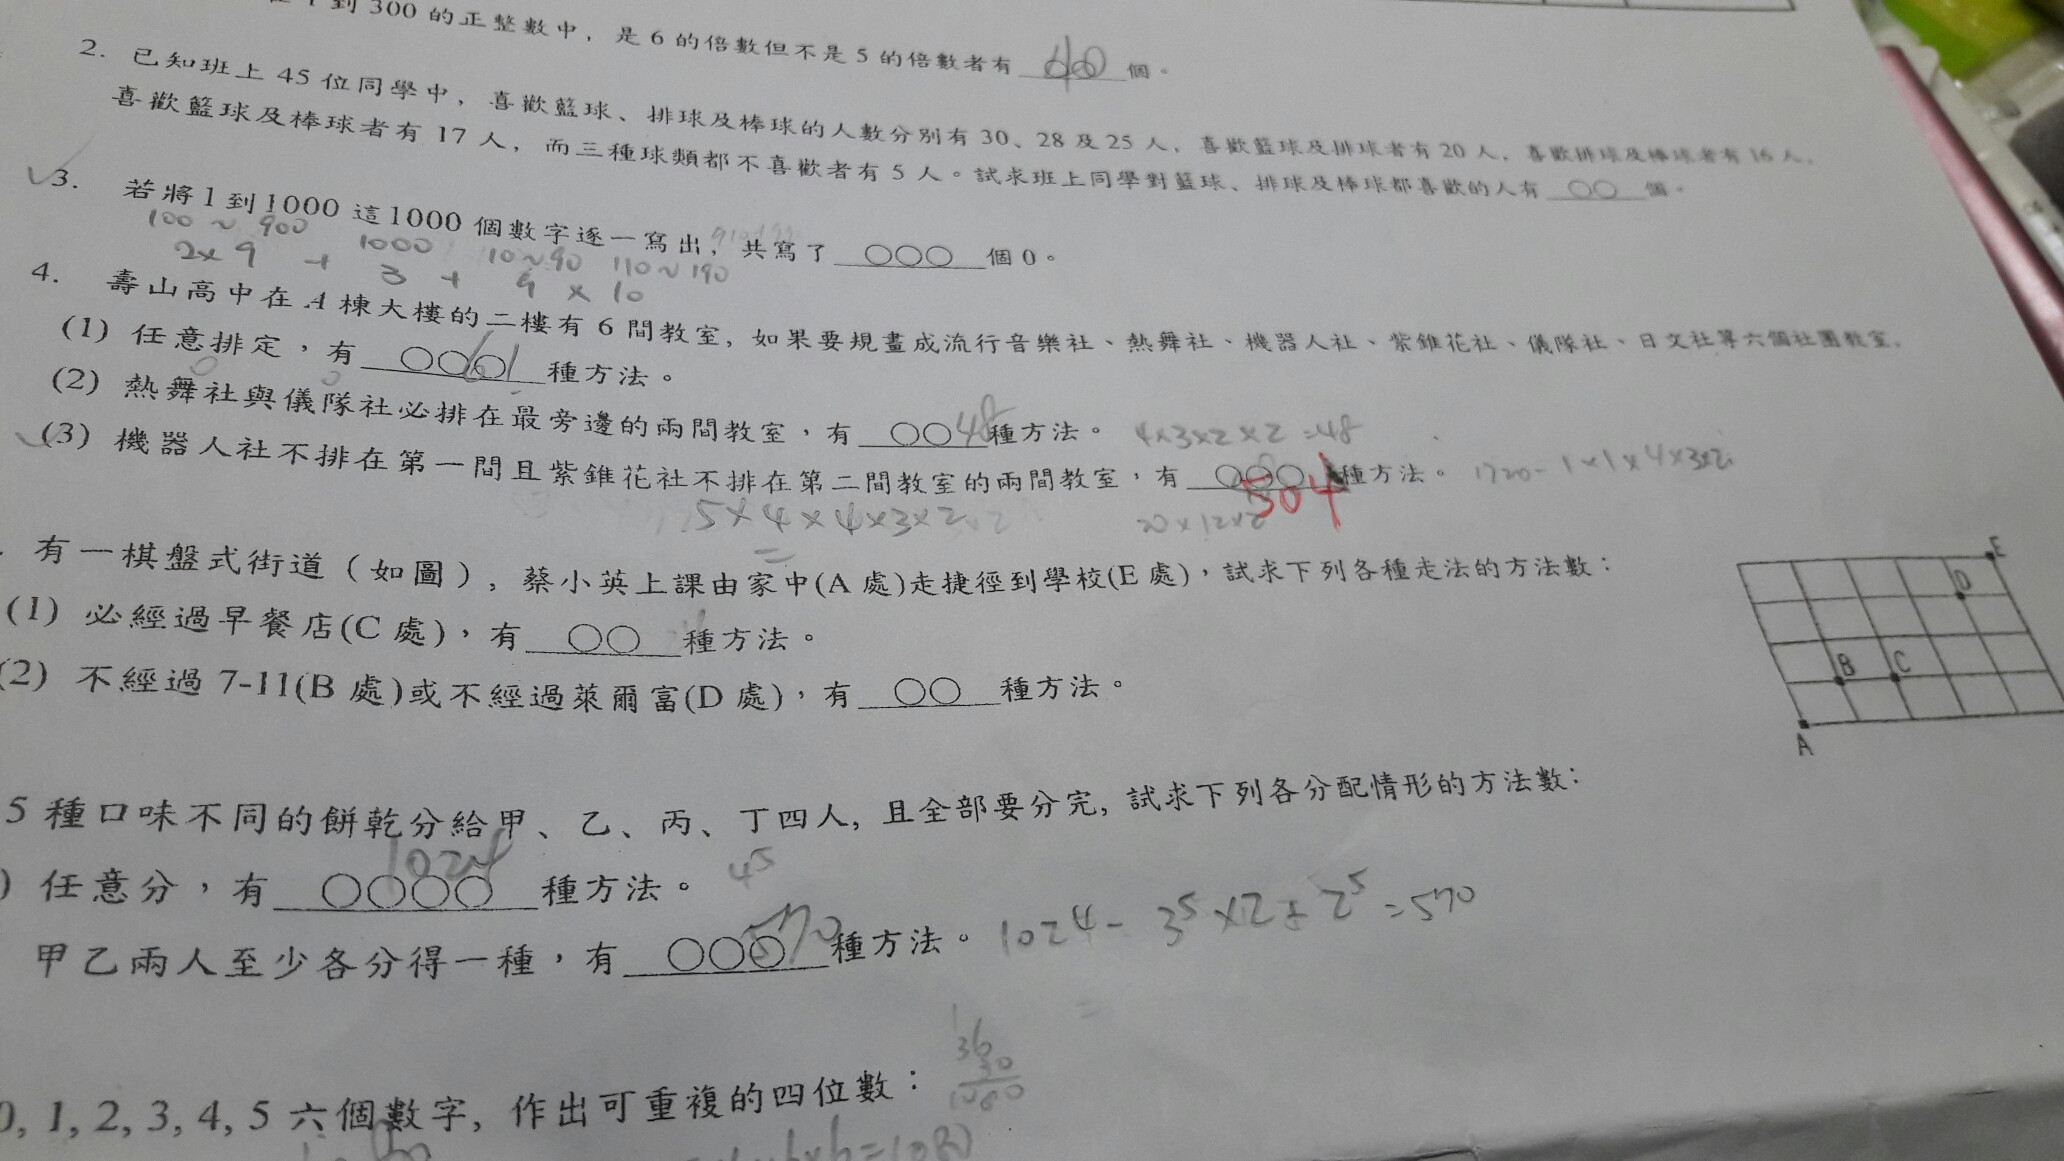 到 300 的正整數中，是 6 的倍數但不是 5 的倍數者有 40 個。
2. 已知班上 45 位同學中，喜歡籃球、排球及棒球的人數分別有 30、28 及 25 人，喜歡籃球及排球者有 20 人，喜歡排球及棒球者有 16 人，
喜歡籃球及棒球者有 17 人，而三種球類都不喜歡者有 5 人。試求班上同學對籃球、排球及棒球都喜歡的人有 ○○ 個。
✓3. 若將 1 到 1000 這 1000 個數字逐一寫出，共寫了 ○○○ 個 0。
100 ~ 900 1000 10~90 110~190
2×9 + 3 + 9 × 10
4. 壽山高中在 A 棟大樓的二樓有 6 間教室, 如果要規畫成流行音樂社、熱舞社、機器人社、紫錐花社、儀隊社、日文社等六個社團教室,
(1) 任意排定，有 ○○○ 6! 種方法。
(2) 熱舞社與儀隊社必排在最旁邊的兩間教室，有 ○○ 48 種方法。 4×3×2×2=48
✓(3) 機器人社不排在第一間且紫錐花社不排在第二間教室的兩間教室，有 ○○○ 504 種方法。 1720-1×1×4×3×2
5×4×4×3×2 20×12×2
有一棋盤式街道（如圖）, 蔡小英上課由家中(A 處)走捷徑到學校(E 處)，試求下列各種走法的方法數：
(1) 必經過早餐店(C 處)，有 ○○ 種方法。
(2) 不經過 7-11(B 處)或不經過萊爾富(D 處)，有 ○○ 種方法。
E
D
B C
A
5 種口味不同的餅乾分給甲、乙、丙、丁四人, 且全部要分完, 試求下列各分配情形的方法數：
) 任意分，有 ○○○○ 1024 種方法。 4⁵
甲乙兩人至少各分得一種，有 ○○○ 570 種方法。 1024-3⁵×2+2⁵=570
36
30
1080
0, 1, 2, 3, 4, 5 六個數字, 作出可重複的四位數：